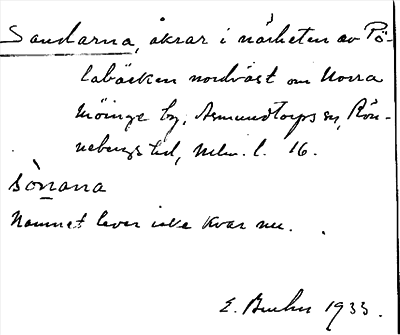 Sandarna, åkrar i närheten av Pö-
labäcken nordväst om Norra
Möinge by, Asmundtorps sn, Rön-
nebergs hd, Mlm. l. 16.
sònana
Namnet lever icke kvar nu.
E. 1933.